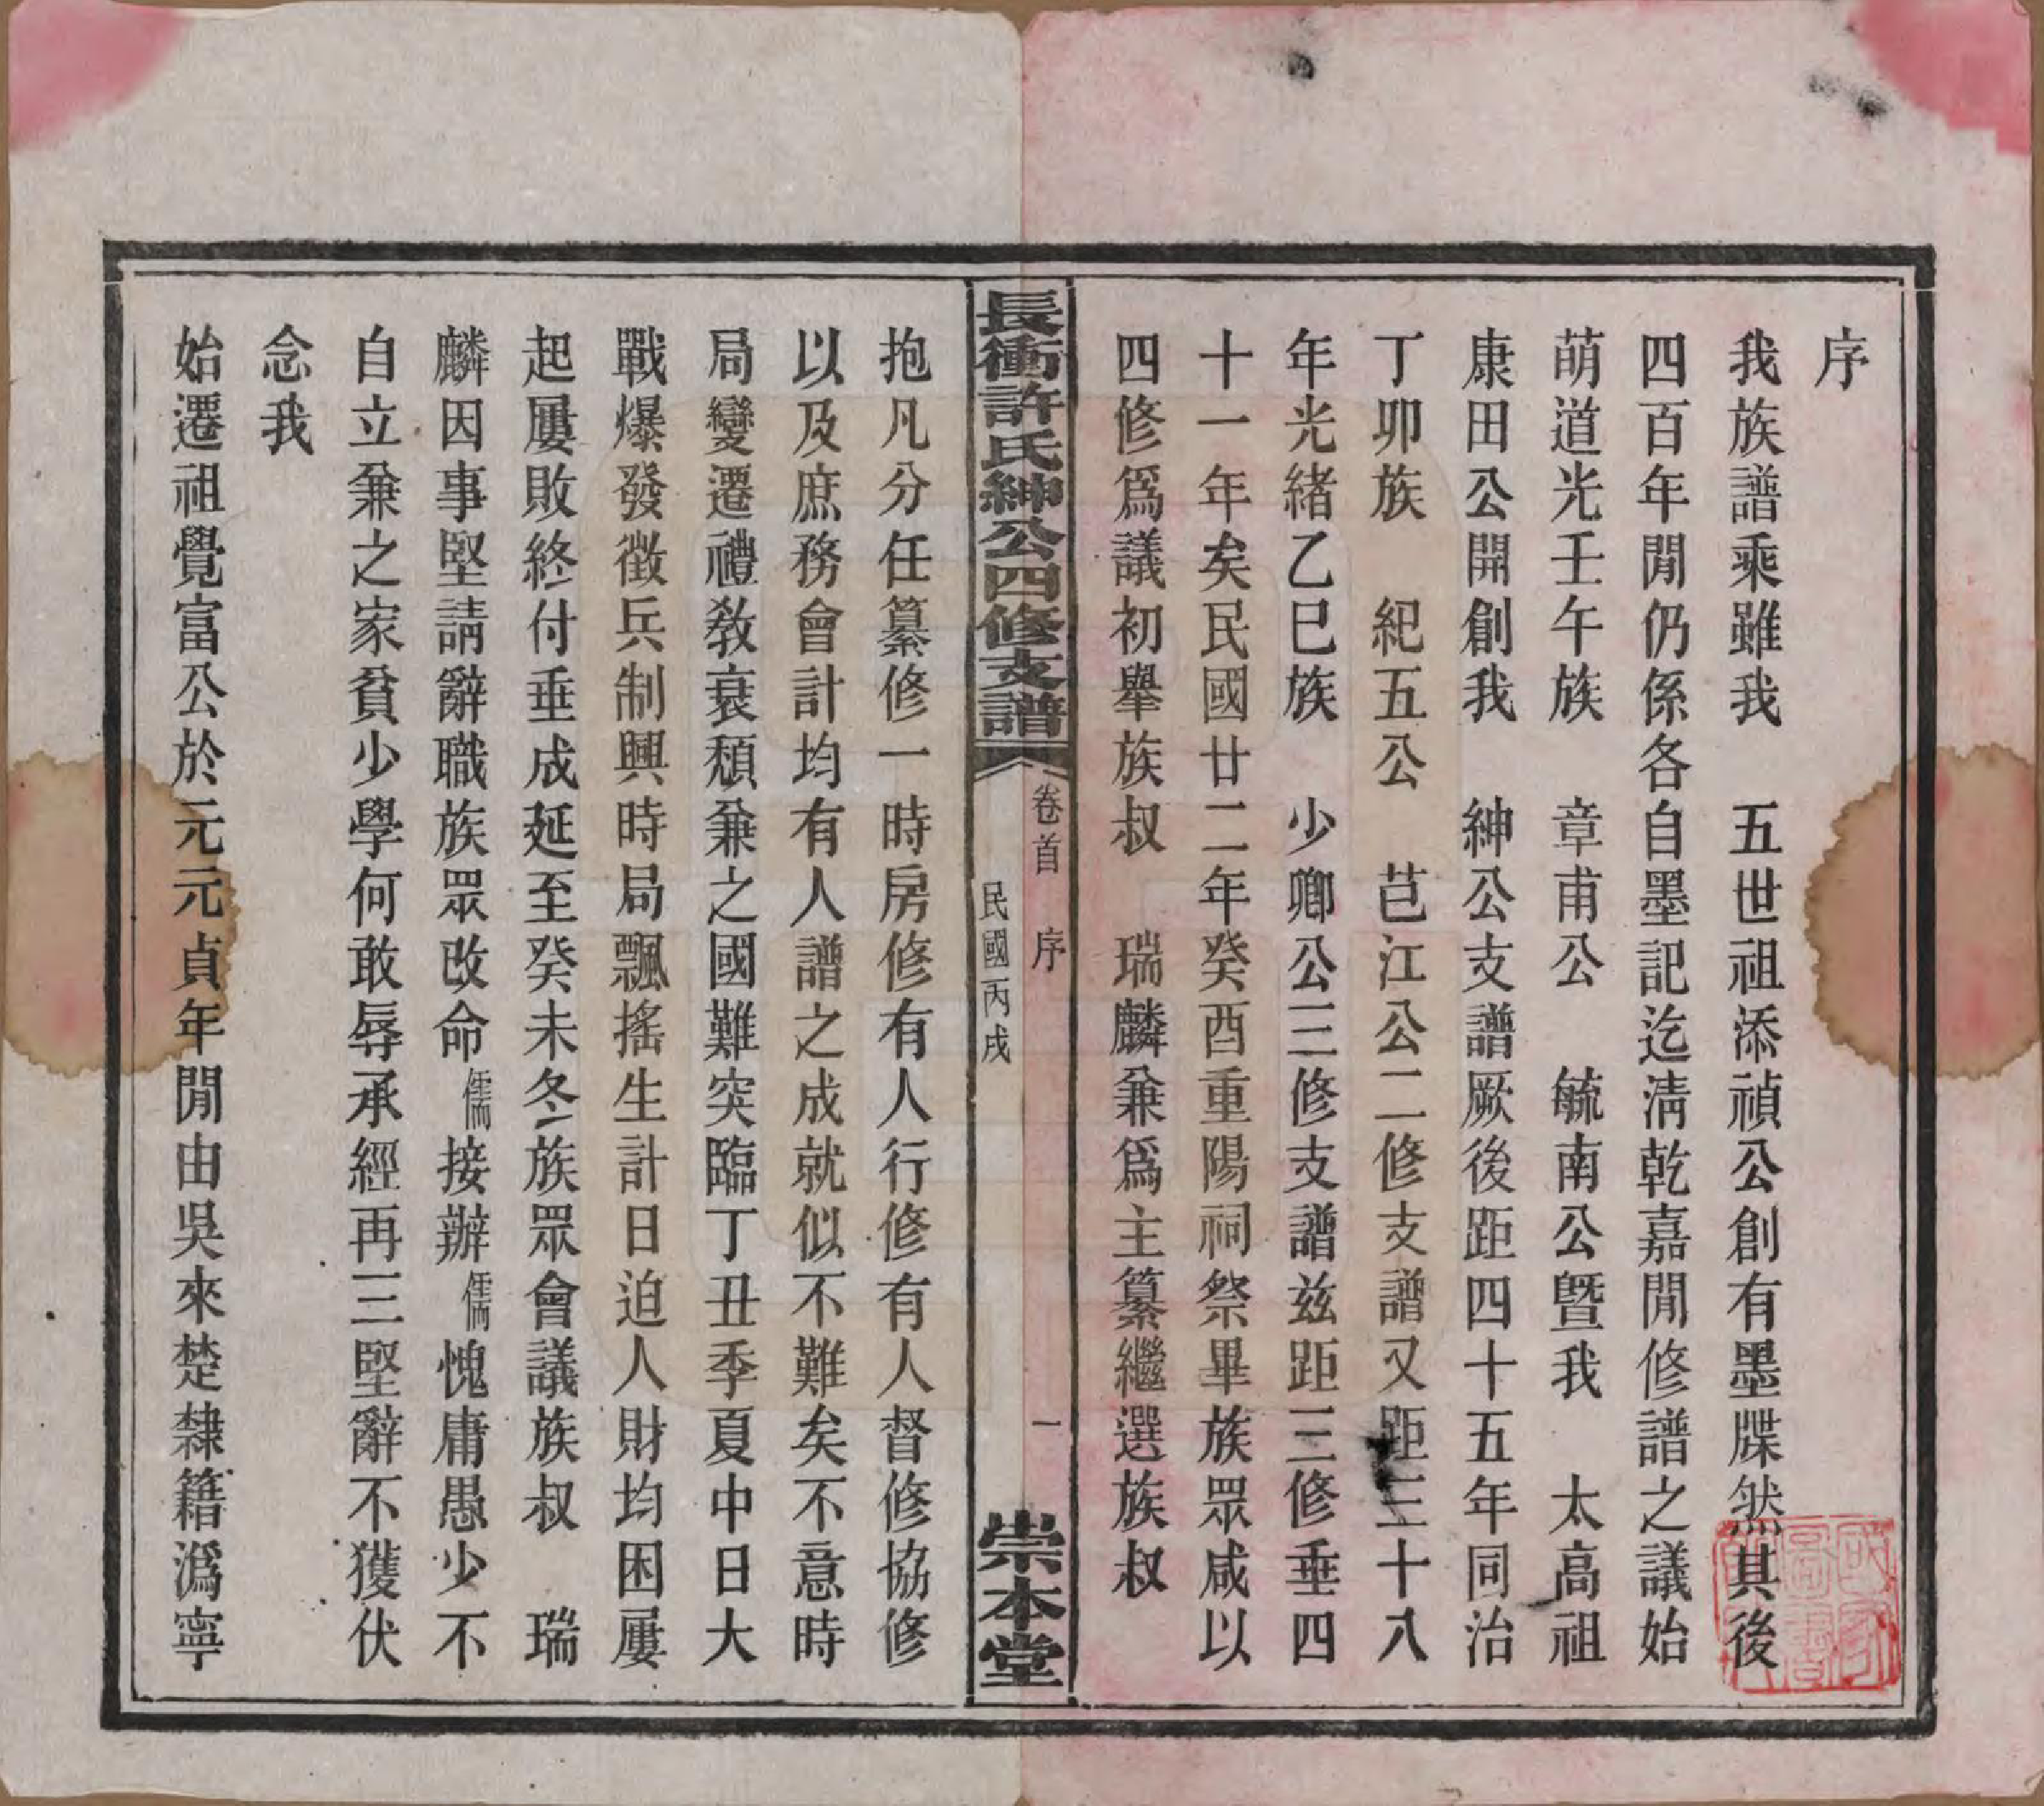 序
我族譜乘雖我　五世祖添禎公創有墨牒然其後
四百年閒仍係各自墨記迄淸乾嘉閒修譜之議始
萌道光壬午族　章甫公　毓南公曁我　太高祖
康田公開創我　紳公支譜厥後距四十五年同治
丁卯族　紀五公　芑江公二修支譜又距三十八
年光緒乙巳族　少卿公三修支譜兹距三修垂四
十一年矣民國廿二年癸酉重陽祠祭畢族眾咸以
四修爲議初舉族叔　瑞麟兼爲主纂繼選族叔
長衝許氏紳公四修支譜
卷首　序
一
民國丙戌
崇本堂
抱凡分任纂修一時房修有人行修有人督修協修
以及庶務會計均有人譜之成就似不難矣不意時
局變遷禮敎衰頹兼之國難突臨丁丑季夏中日大
戰爆發徵兵制興時局飄搖生計日迫人財均困屢
起屢敗終付垂成延至癸未冬族眾會議族叔　瑞
麟因事堅請辭職族眾改命儒接辦儒愧庸愚少不
自立兼之家貧少學何敢辱承經再三堅辭不獲伏
念我
始遷祖覺富公於元元貞年閒由吳來楚隸籍潙寧